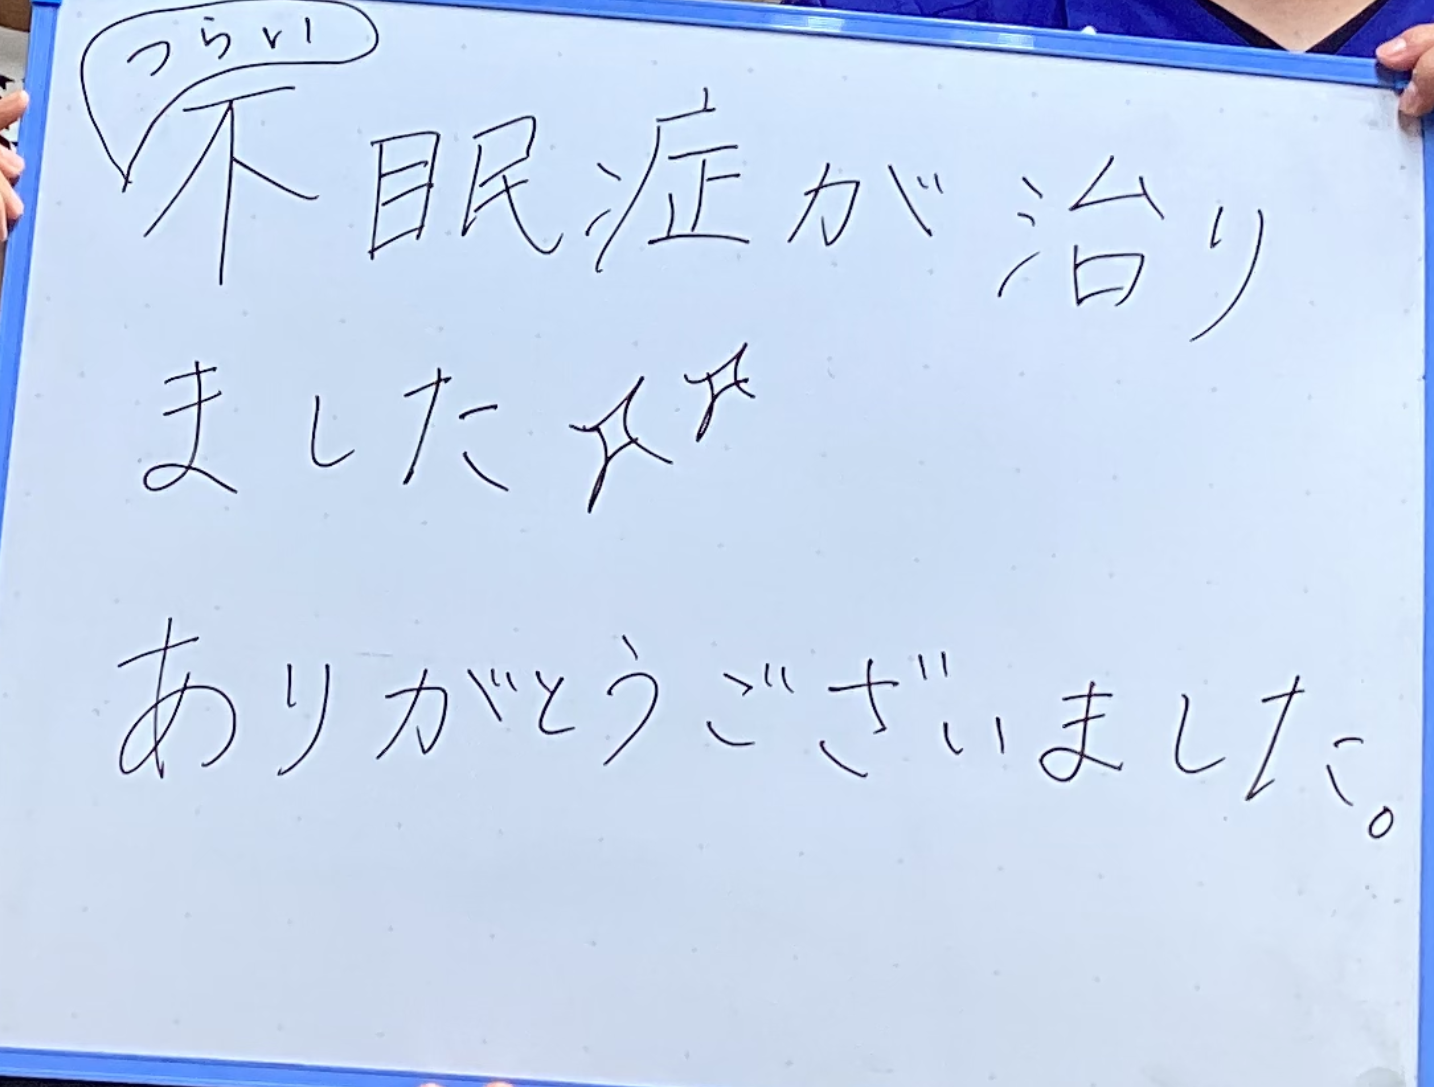 つらい
不眠症が治り
ました
ありがとうございました。